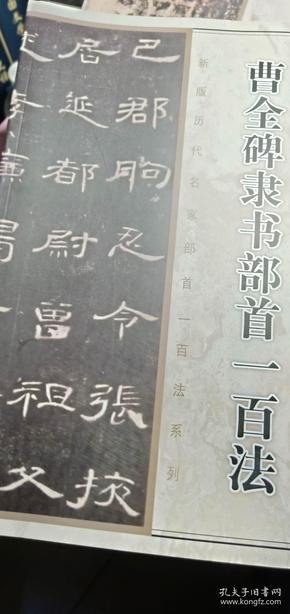 曹全碑隶书部首一百法
新版历代名家部首一百法系列
巴郡朐忍令張掖
居延都尉曾祖父
孔夫子旧书网